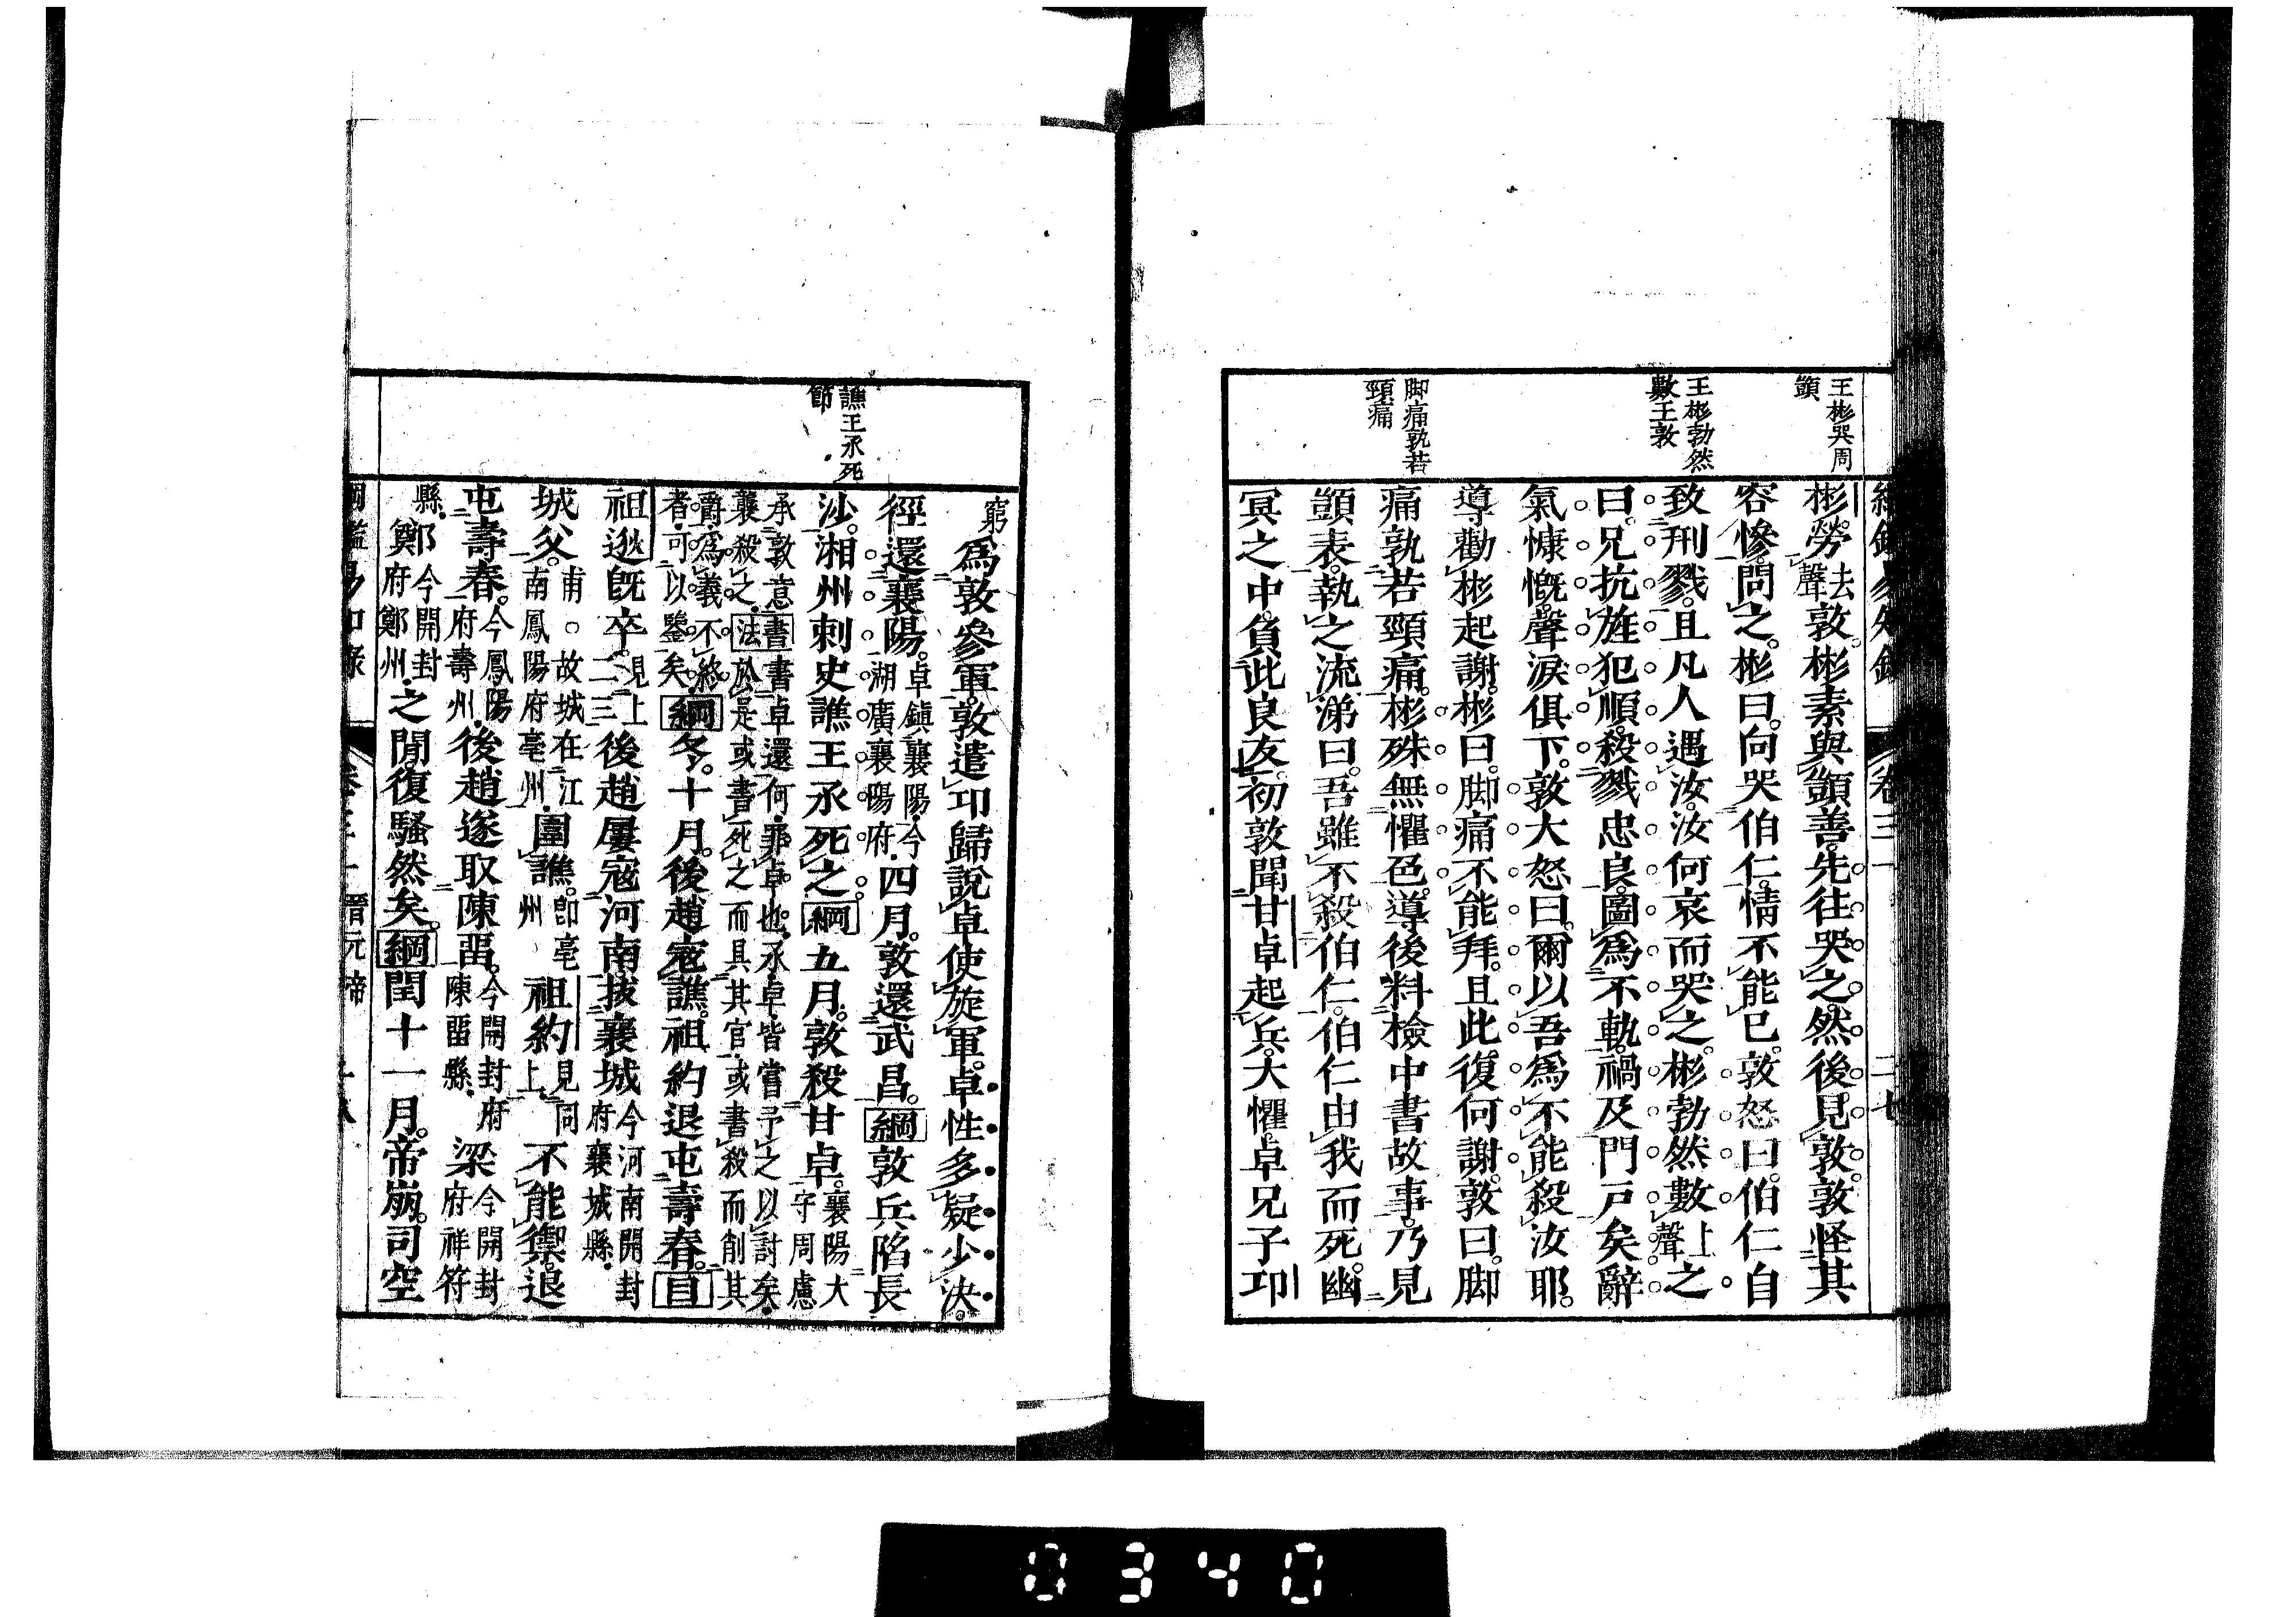 綱鑑易知錄 卷三十 二七
王彬哭周
顗
王彬勃然
數王敦
脚痛孰若
頸痛
彬勞去聲敦。彬素與顗善。先往哭之。然後見敦。敦怪其
容慘。問之。彬曰。向哭伯仁。情不能已。敦怒曰。伯仁自
致刑戮。且凡人遇汝。汝何哀而哭之。彬勃然數上聲之
曰。兄抗旌犯順。殺戮忠良。圖爲不軌。禍及門戸矣。辭
氣慷慨。聲淚俱下。敦大怒曰。爾以吾爲不能殺汝耶。
導勸彬起謝。彬曰。脚痛不能拜。且此復何謝。敦曰。脚
痛孰若頸痛。彬殊無懼色。導後料檢中書故事。乃見
顗表。執之流涕曰。吾雖不殺伯仁。伯仁由我而死。幽
冥之中。負此良友。初敦聞甘卓起兵。大懼。卓兄子卭
窮爲敦參軍。敦遣卭歸說卓使旋軍。卓性多疑少決。
徑還襄陽。卓鎭襄陽。今湖廣襄陽府。四月。敦還武昌。綱敦兵陷長
沙。湘州刺史譙王承死之。綱五月。敦殺甘卓。襄陽大守周慮
承敦意襲殺之。書法書卓還何。罪卓也。承卓皆嘗予之以討矣。於是或書死之而具其官。或書殺而削其
爵。爲義不終者。可以鑒矣。綱冬。十月。後趙寇譙。祖約退屯壽春。目
祖逖旣卒。見上二三後趙屢寇河南。拔襄城今河南開封府襄城縣。
城父。甫。故城在江南鳳陽府亳州。圍譙。卽亳州祖約見同上。不能禦。退
屯壽春。今鳳陽府壽州。後趙遂取陳畱。今開封府陳畱縣。梁今開封府祥符
縣。鄭今開封府鄭州。之閒復騷然矣。綱閏十一月。帝崩。司空
譙王承死
節
綱鑑易知錄 卷三十 晉元帝 二八
0340